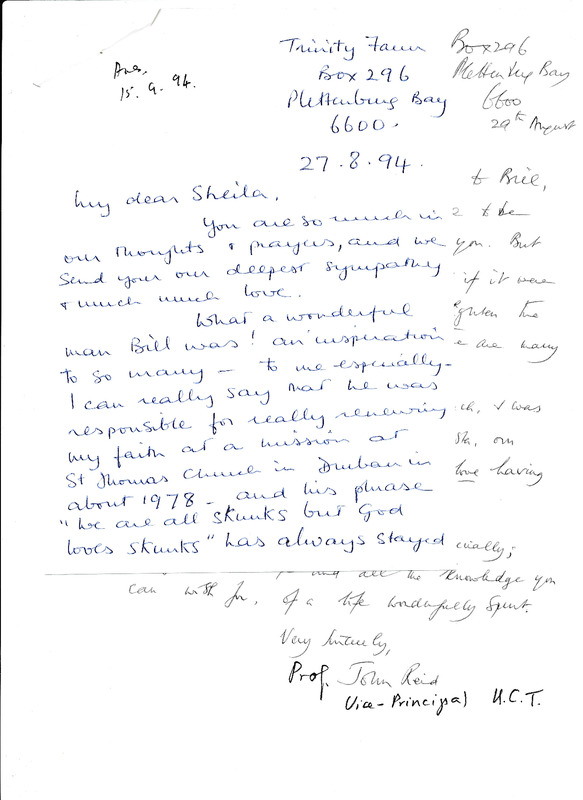 Ans.
15. 9. 94.
Trinity Farm
Box 296
Plettenburg Bay
6600.
27.8.94.
My dear Sheila,
You are so much in
our thoughts & prayers, and we
send your our deepest sympathy
& much much love.
What a wonderful
man Bill was! an inspiration
to so many – to me especially –
I can really say that he was
responsible for really renewing
my faith at a mission at
St Thomas Church in Durban in
about 1978 – and his phrase
"We are all skunks but God
loves skunks" has always stayed
Box 296
Plettenburg Bay
6600
29th August
to Bill,
to be
you. But
if it were
the
are many
& was
our
love having
and all the knowledge you
can wish for, of a life wonderfully spent.
Very sincerely,
Prof. John Reid
Vice-Principal U.C.T.